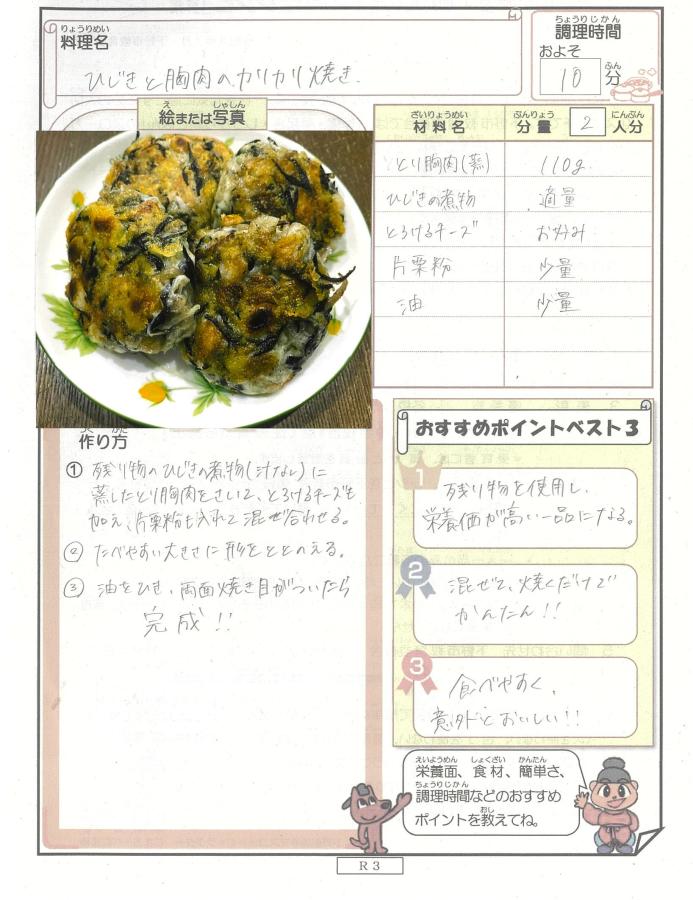 りょうりめい
料理名
ひじきと胸肉のカリカリ焼き
ちょうりじかん
調理時間
およそ
10 分
ふん
え しゃしん
絵または写真
ざいりょうめい ぶんりょう にんぶん
材料名 分量 2 人分
とり胸肉(蒸) 110g
ひじきの煮物 適量
とろけるチーズ お好み
片栗粉 少量
油 少量
作り方
① 残り物のひじきの煮物(汁なし)に
蒸したとり胸肉をさいて、とろけるチーズも
加え、片栗粉も入れて混ぜ合わせる。
② たべやすい大きさに形をととのえる。
③ 油をひき、両面焼き目がついたら
完成!!
おすすめポイントベスト3
1
残り物を使用し、
栄養価が高い一品になる。
2
混ぜて、焼くだけで
かんたん!!
3
食べやすく、
意外とおいしい!!
えいようめん しょくざい かんたん
栄養面、食材、簡単さ、
ちょうりじかん
調理時間などのおすすめ
おし
ポイントを教えてね。
R3